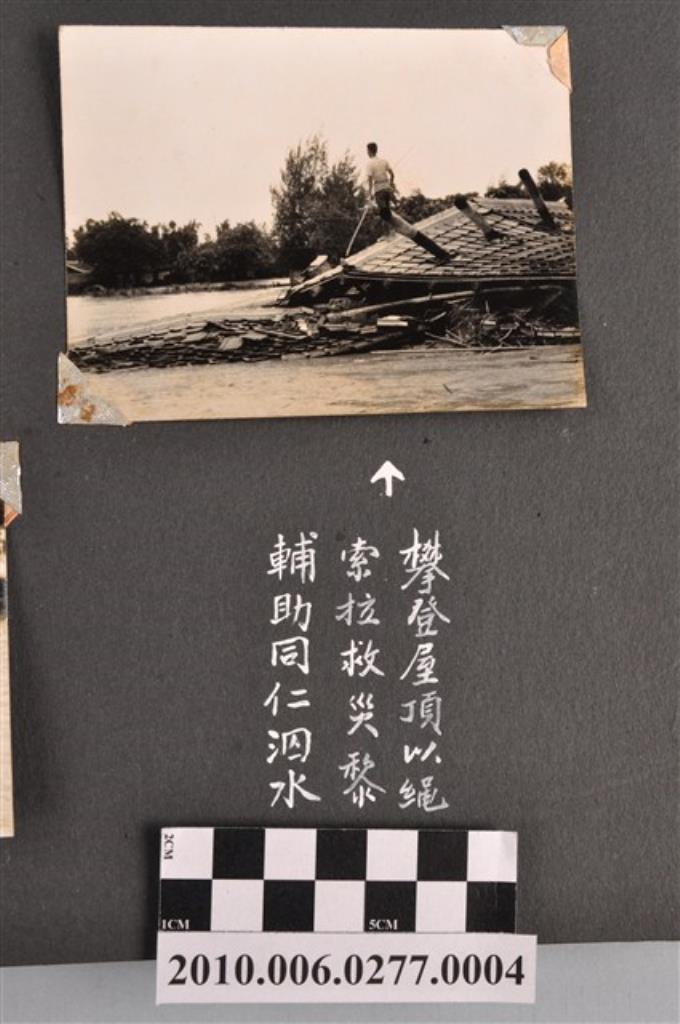 ↑
攀登屋頂以繩
索拉救災黎
輔助同仁泅水
2CM
1CM
5CM
2010.006.0277.0004